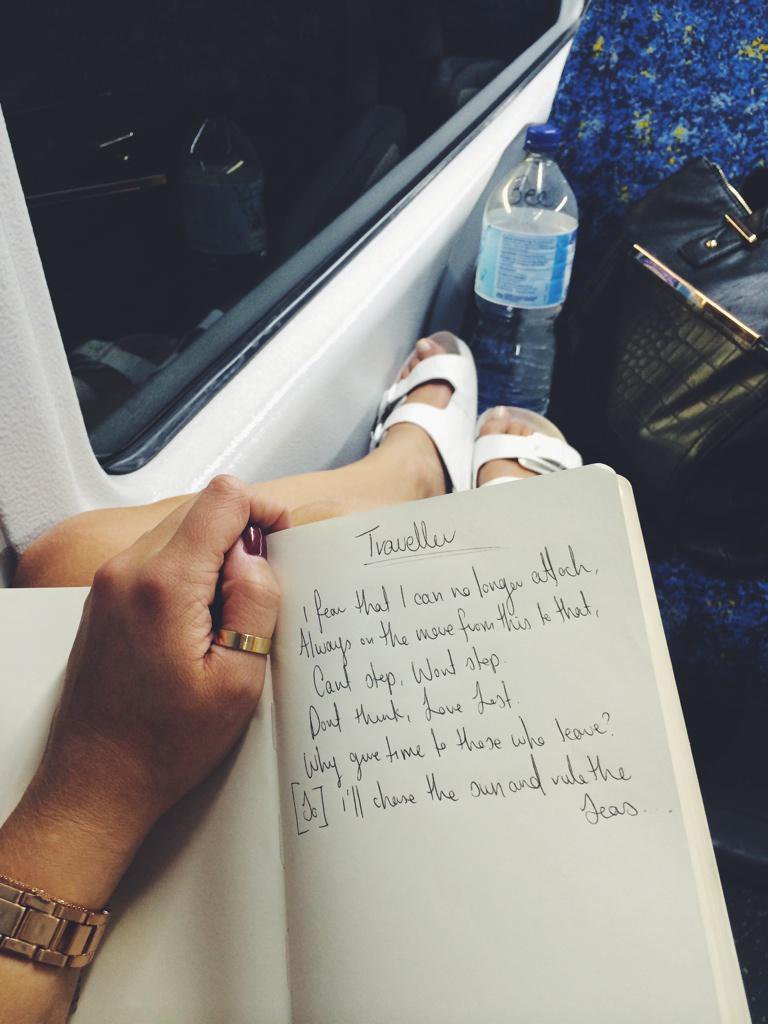 Bec
Traveller
I fear that I can no longer attach,
Always on the move from this to that,
Cant stop, Wont stop.
Dont think, Love Lost.
Why give time to those who leave?
[So] i'll chase the sun and rule the
Seas....